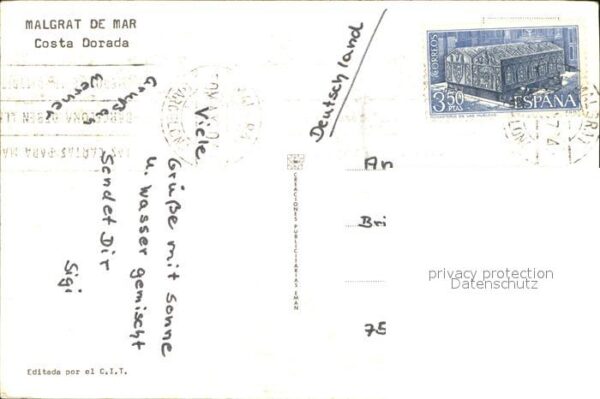 MALGRAT DE MAR
Costa Dorada
Viele
Grüße mit Sonne
u. Wasser gemischt
sendet Dir
Sigi
Gruß
Werner
Deutschland
CORREOS
3,50
PTAS
ESPAÑA
CREACIONES PUBLICITARIAS IMAN
An
Bri
75
privacy protection
Datenschutz
Editada por el C.I.T.